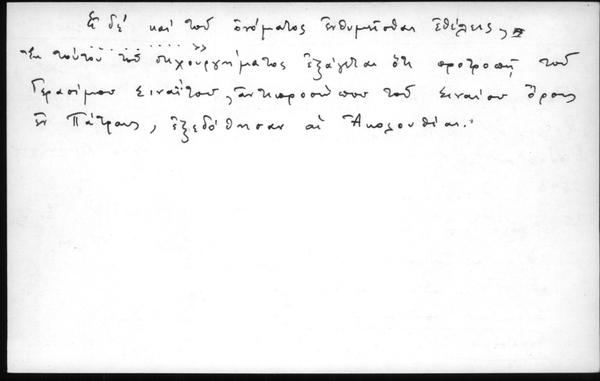 Εἰ δέ καί τοῦ ὀνόματος ἐνθυμεῖσθαι ἐθέλεις,
Ἐκ τούτου τοῦ στιχουργήματος ἐξάγεται ὅτι προτροπῇ τοῦ
Γερασίμου Σιναΐτου, ἀντιπροσώπου τοῦ Σιναίου Ὄρους
ἐν Πάτραις, ἐξεδόθησαν αἱ Ἀκολουθίαι.